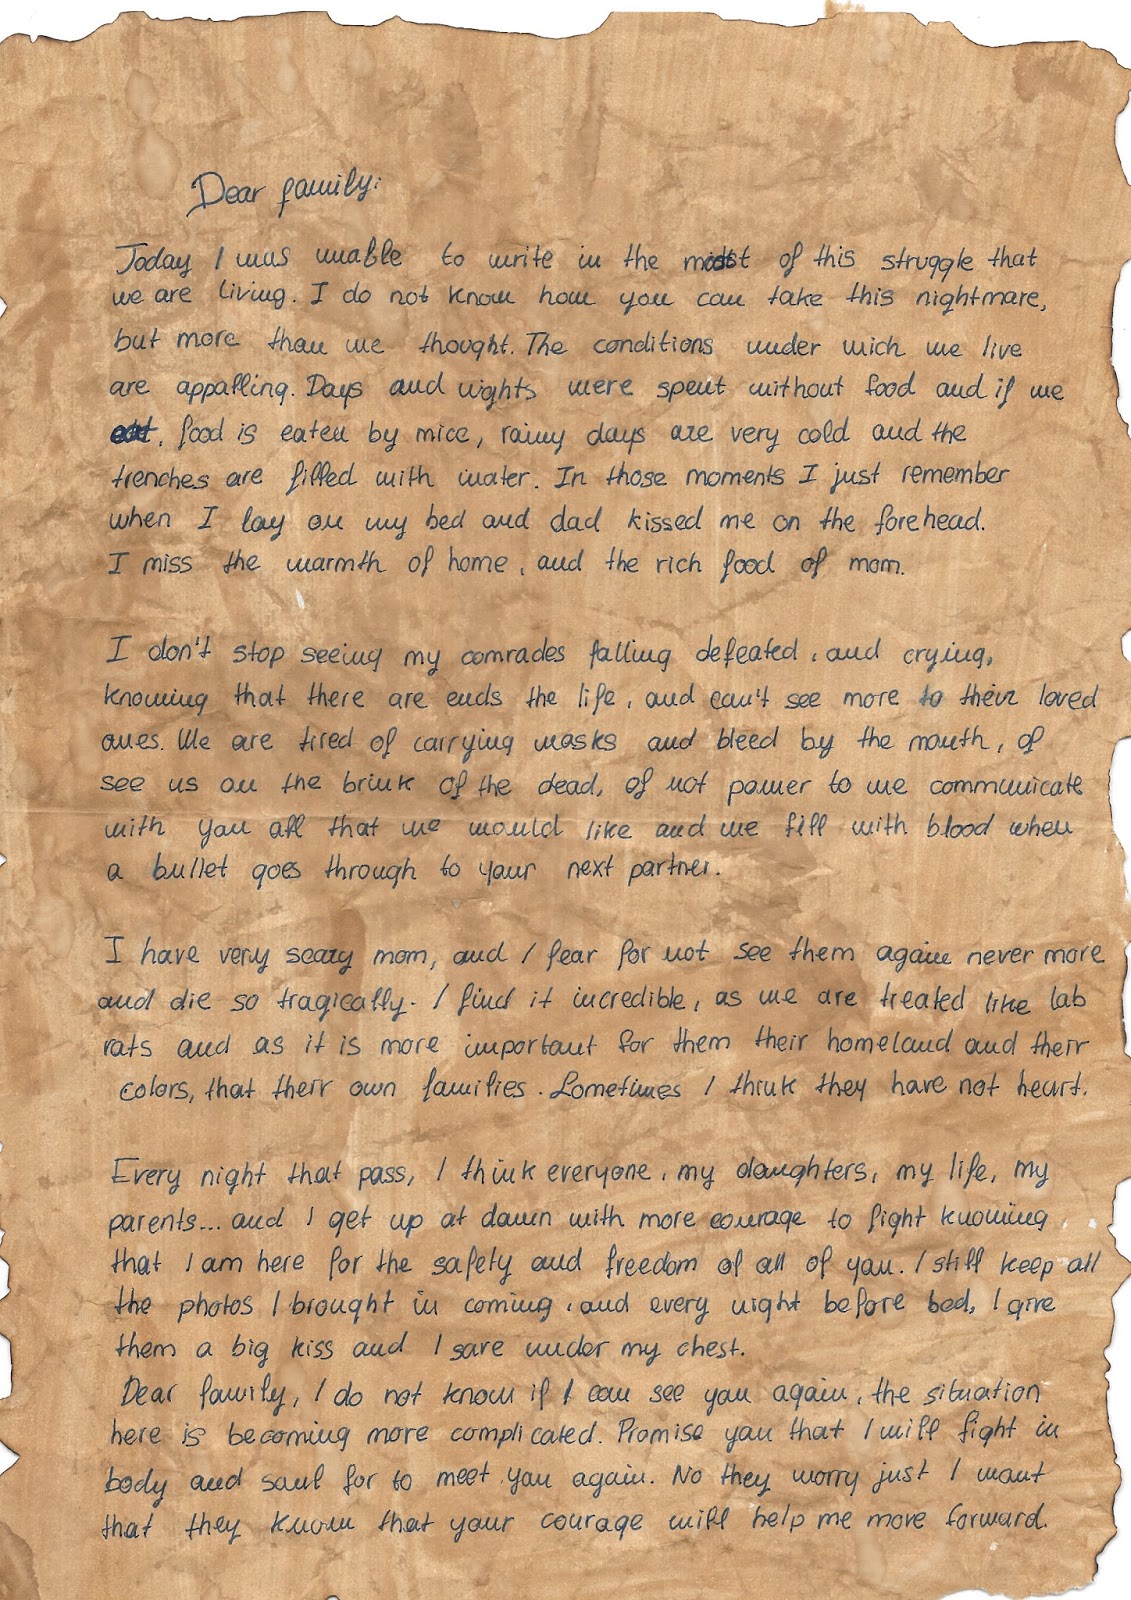 Dear family:
Today I was unable to write in the midst of this struggle that
we are living. I do not know how you can take this nightmare,
but more than we thought. The conditions under wich we live
are appalling. Days and nights were spent without food and if we
eat, food is eaten by mice, rainy days are very cold and the
trenches are filled with water. In those moments I just remember
when I lay on my bed and dad kissed me on the forehead.
I miss the warmth of home, and the rich food of mom.
I don't stop seeing my comrades falling defeated, and crying,
knowing that there are ends the life, and can't see more to their loved
ones. We are tired of carrying masks and bleed by the mouth, of
see us on the brink of the dead, of not power to we communicate
with you all that we would like and we fill with blood when
a bullet goes through to your next partner.
I have very scary mom, and I fear for not see them again never more
and die so tragically. I find it incredible, as we are treated like lab
rats and as it is more important for them their homeland and their
colors, that their own families. Sometimes I think they have not heart.
Every night that pass, I think everyone, my daughters, my life, my
parents... and I get up at dawn with more courage to fight knowing
that I am here for the safety and freedom of all of you. I still keep all
the photos I brought in coming, and every night before bed, I give
them a big kiss and I save under my chest.
Dear family, I do not know if I can see you again, the situation
here is becoming more complicated. Promise you that I will fight in
body and soul for to meet you again. No they worry just I want
that they know that your courage will help me move forward.